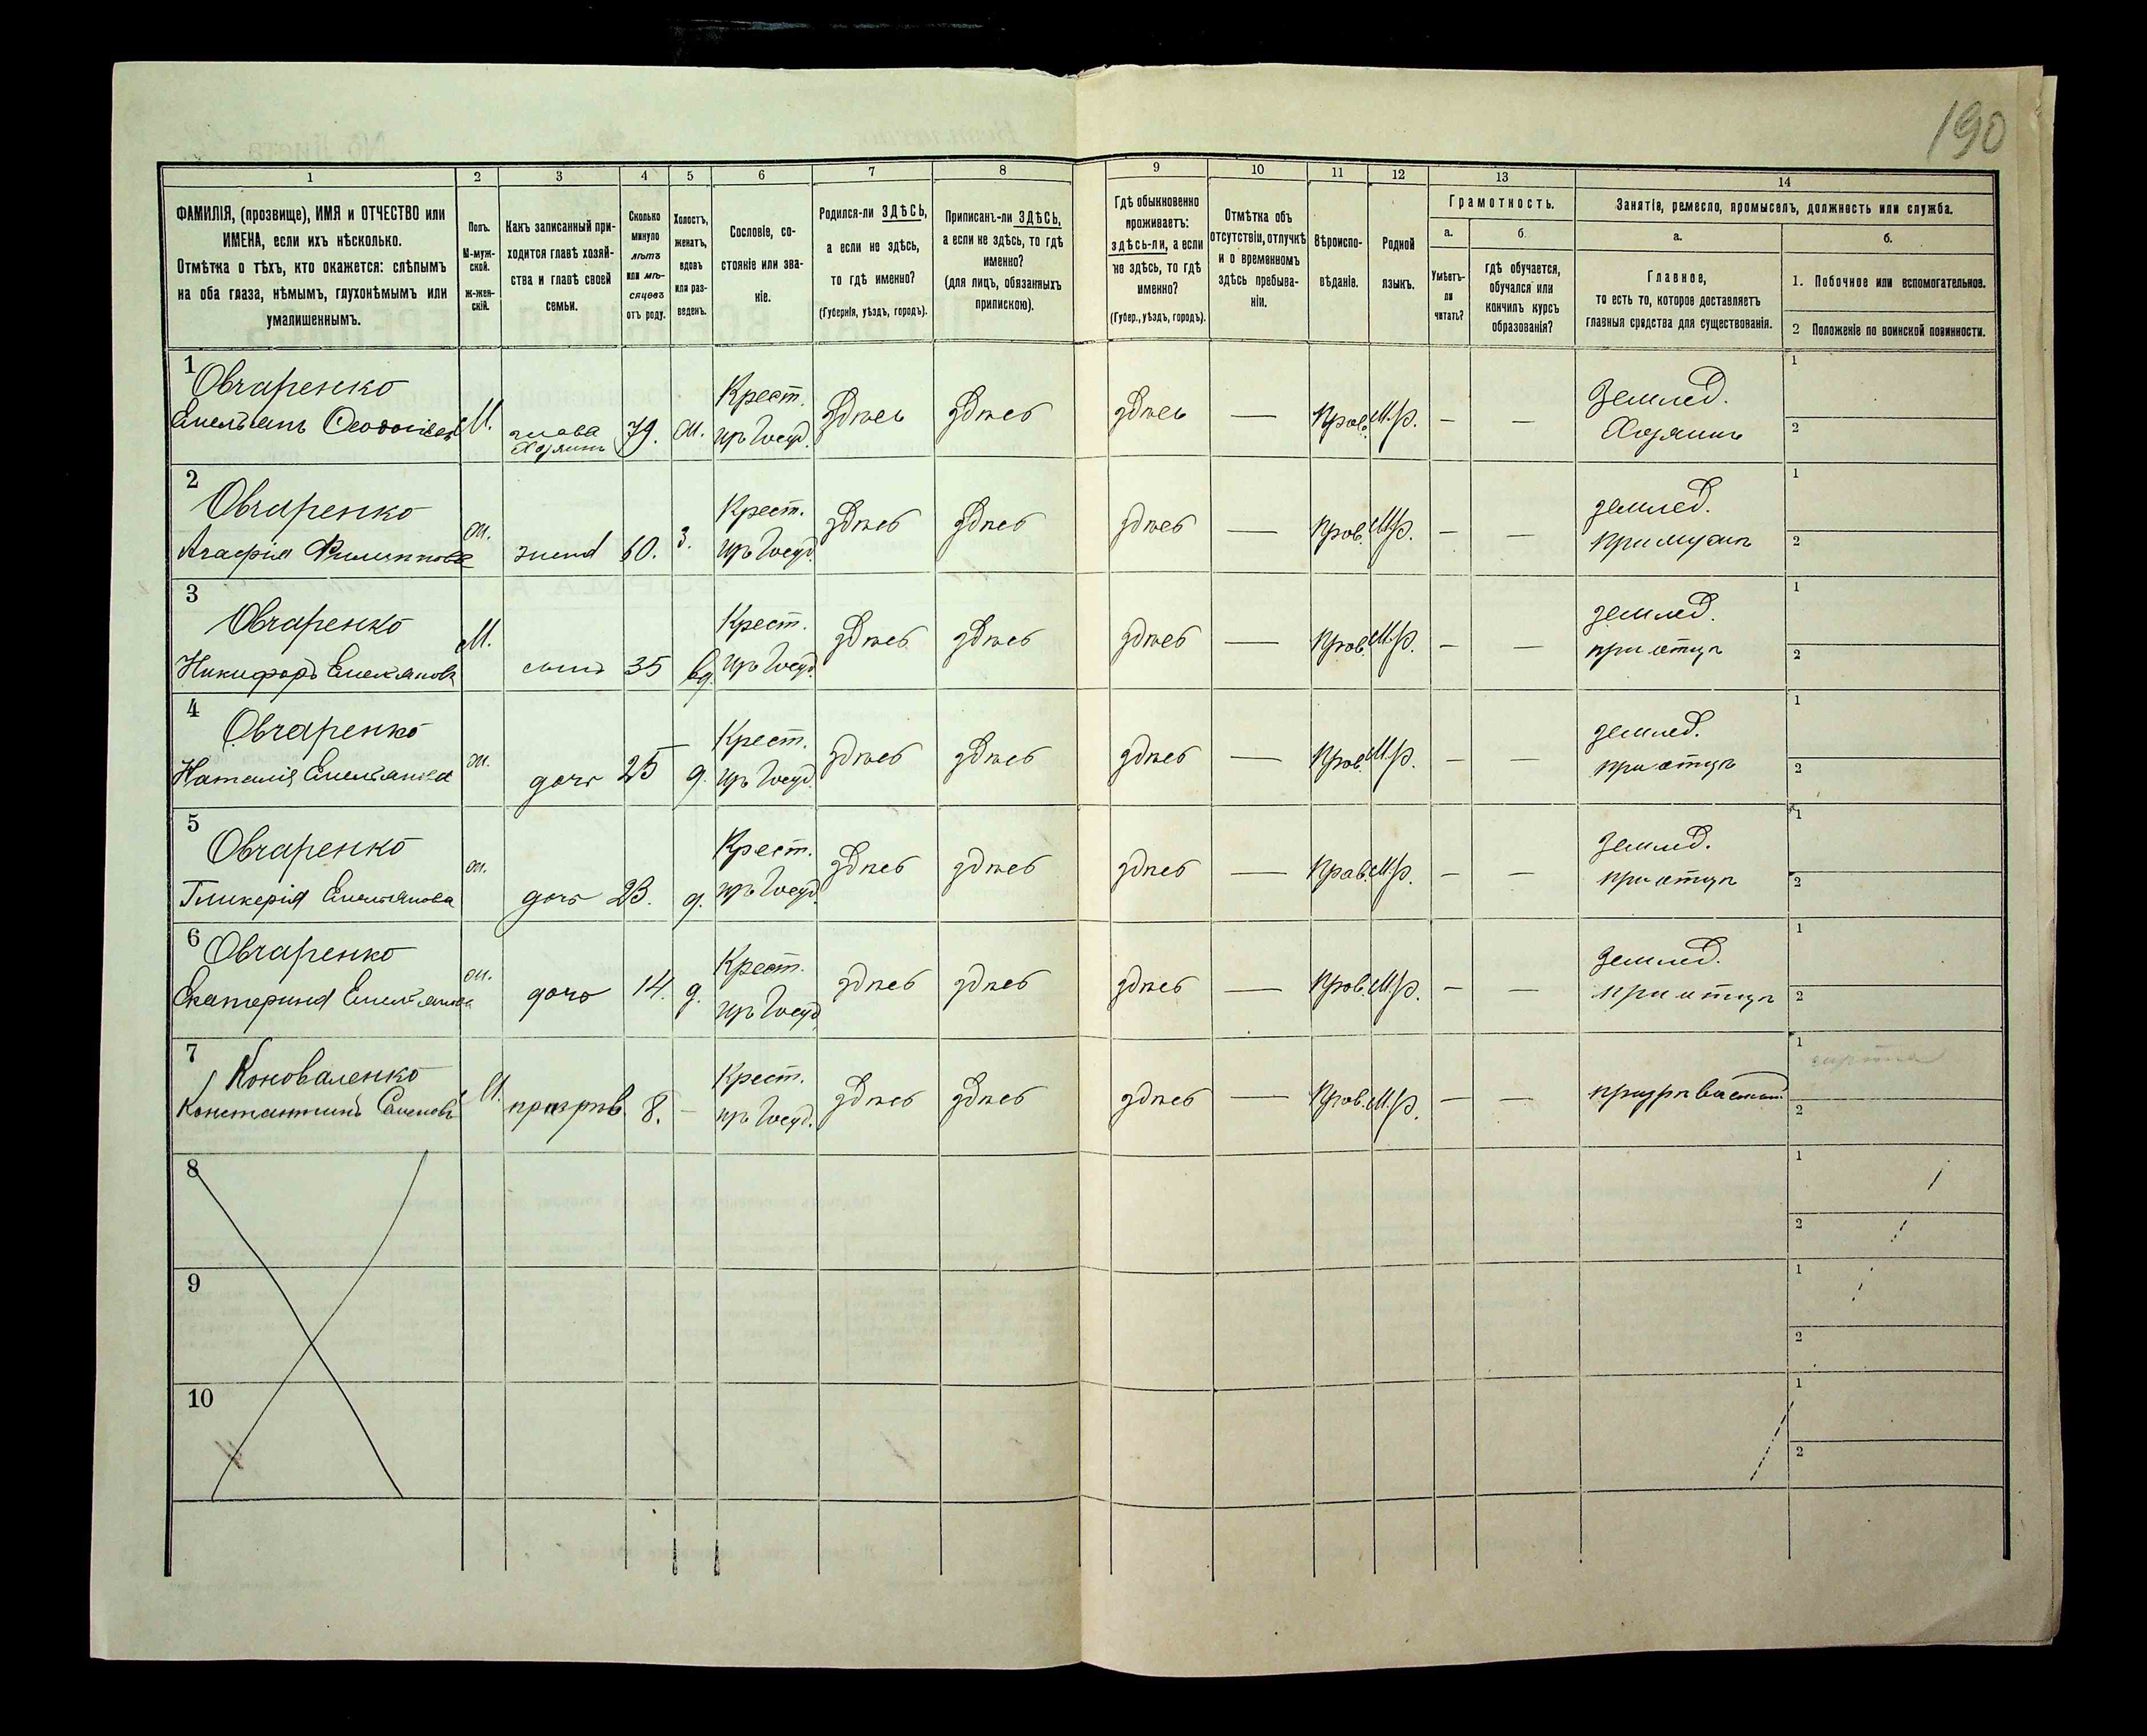 190
1 2 3 4 5 6 7 8 9 10 11 12 13 14
ФАМИЛІЯ, (прозвище), ИМЯ и ОТЧЕСТВО или
ИМЕНА, если ихъ нѣсколько.
Отмѣтка о тѣхъ, кто окажется: слѣпымъ
на оба глаза, нѣмымъ, глухонѣмымъ или
умалишеннымъ.
Полъ.
М-муж-
ской.
ж-жен-
скій.
Какъ записанный при-
ходится главѣ хозяй-
ства и главѣ своей
семьи.
Сколько
минуло
лѣтъ
или мѣ-
сяцевъ
отъ роду.
Холостъ,
женатъ,
вдовъ
или раз-
веденъ.
Сословіе, со-
стояніе или зва-
ніе.
Родился-ли ЗДѢСЬ,
а если не здѣсь,
то гдѣ именно?
(Губернія, уѣздъ, городъ).
Приписанъ-ли ЗДѢСЬ,
а если не здѣсь, то гдѣ
именно?
(для лицъ, обязанныхъ
припискою).
Гдѣ обыкновенно
проживаетъ:
здѣсь-ли, а если
не здѣсь, то гдѣ
именно?
(Губер., уѣздъ, городъ).
Отмѣтка объ
отсутствіи, отлучкѣ
и о временномъ
здѣсь пребыва-
ніи.
Вѣроиспо-
вѣданіе.
Родной
языкъ.
Грамотность.
а.
Умѣетъ-
ли
читать?
б.
гдѣ обучается,
обучался или
кончилъ курсъ
образованія?
Занятіе, ремесло, промыселъ, должность или служба.
а.
Главное,
то есть то, которое доставляетъ
главныя средства для существованія.
б.
1. Побочное или вспомогательное.
2 Положеніе по воинской повинности.
1 Овчаренко Крест. Землед. 1
Емельянъ М. глава 79. ж. изъ Госуд. здѣсь здѣсь здѣсь — Прав. М.р. — — Хозяинъ 2
Хозяинъ
2 Овчаренко Крест. землед. 1
Агафія Филиппова ж. жена 60. з. изъ Госуд. здѣсь здѣсь здѣсь — Прав. М.р. — — при мужѣ 2
3 Овчаренко Крест. землед. 1
Никифоръ Емельяновъ М. сынъ 35 вд. изъ Госуд. здѣсь здѣсь здѣсь — Прав. М.р. — — при отцѣ 2
4 Овчаренко Крест. землед. 1
Наталія Емельянова ж. дочь 25 д. изъ Госуд. здѣсь здѣсь здѣсь — Прав. М.р. — — при отцѣ 2
5 Овчаренко Крест. Землед. 1
Гликерія Емельянова ж. дочь 23. д. изъ Госуд. здѣсь здѣсь здѣсь — Прав. М.р. — — при отцѣ 2
6 Овчаренко Крест. Землед. 1
Екатерина Емельянова ж. дочь 14. д. изъ Госуд. здѣсь здѣсь здѣсь — Прав. М.р. — — при отцѣ 2
7 Коноваленко Крест. 1 сирота
Константинъ Семеновъ М. 8. — изъ Госуд. здѣсь здѣсь здѣсь — Прав. М.р. — — 2
8 1
2
9 1
2
10 1
2